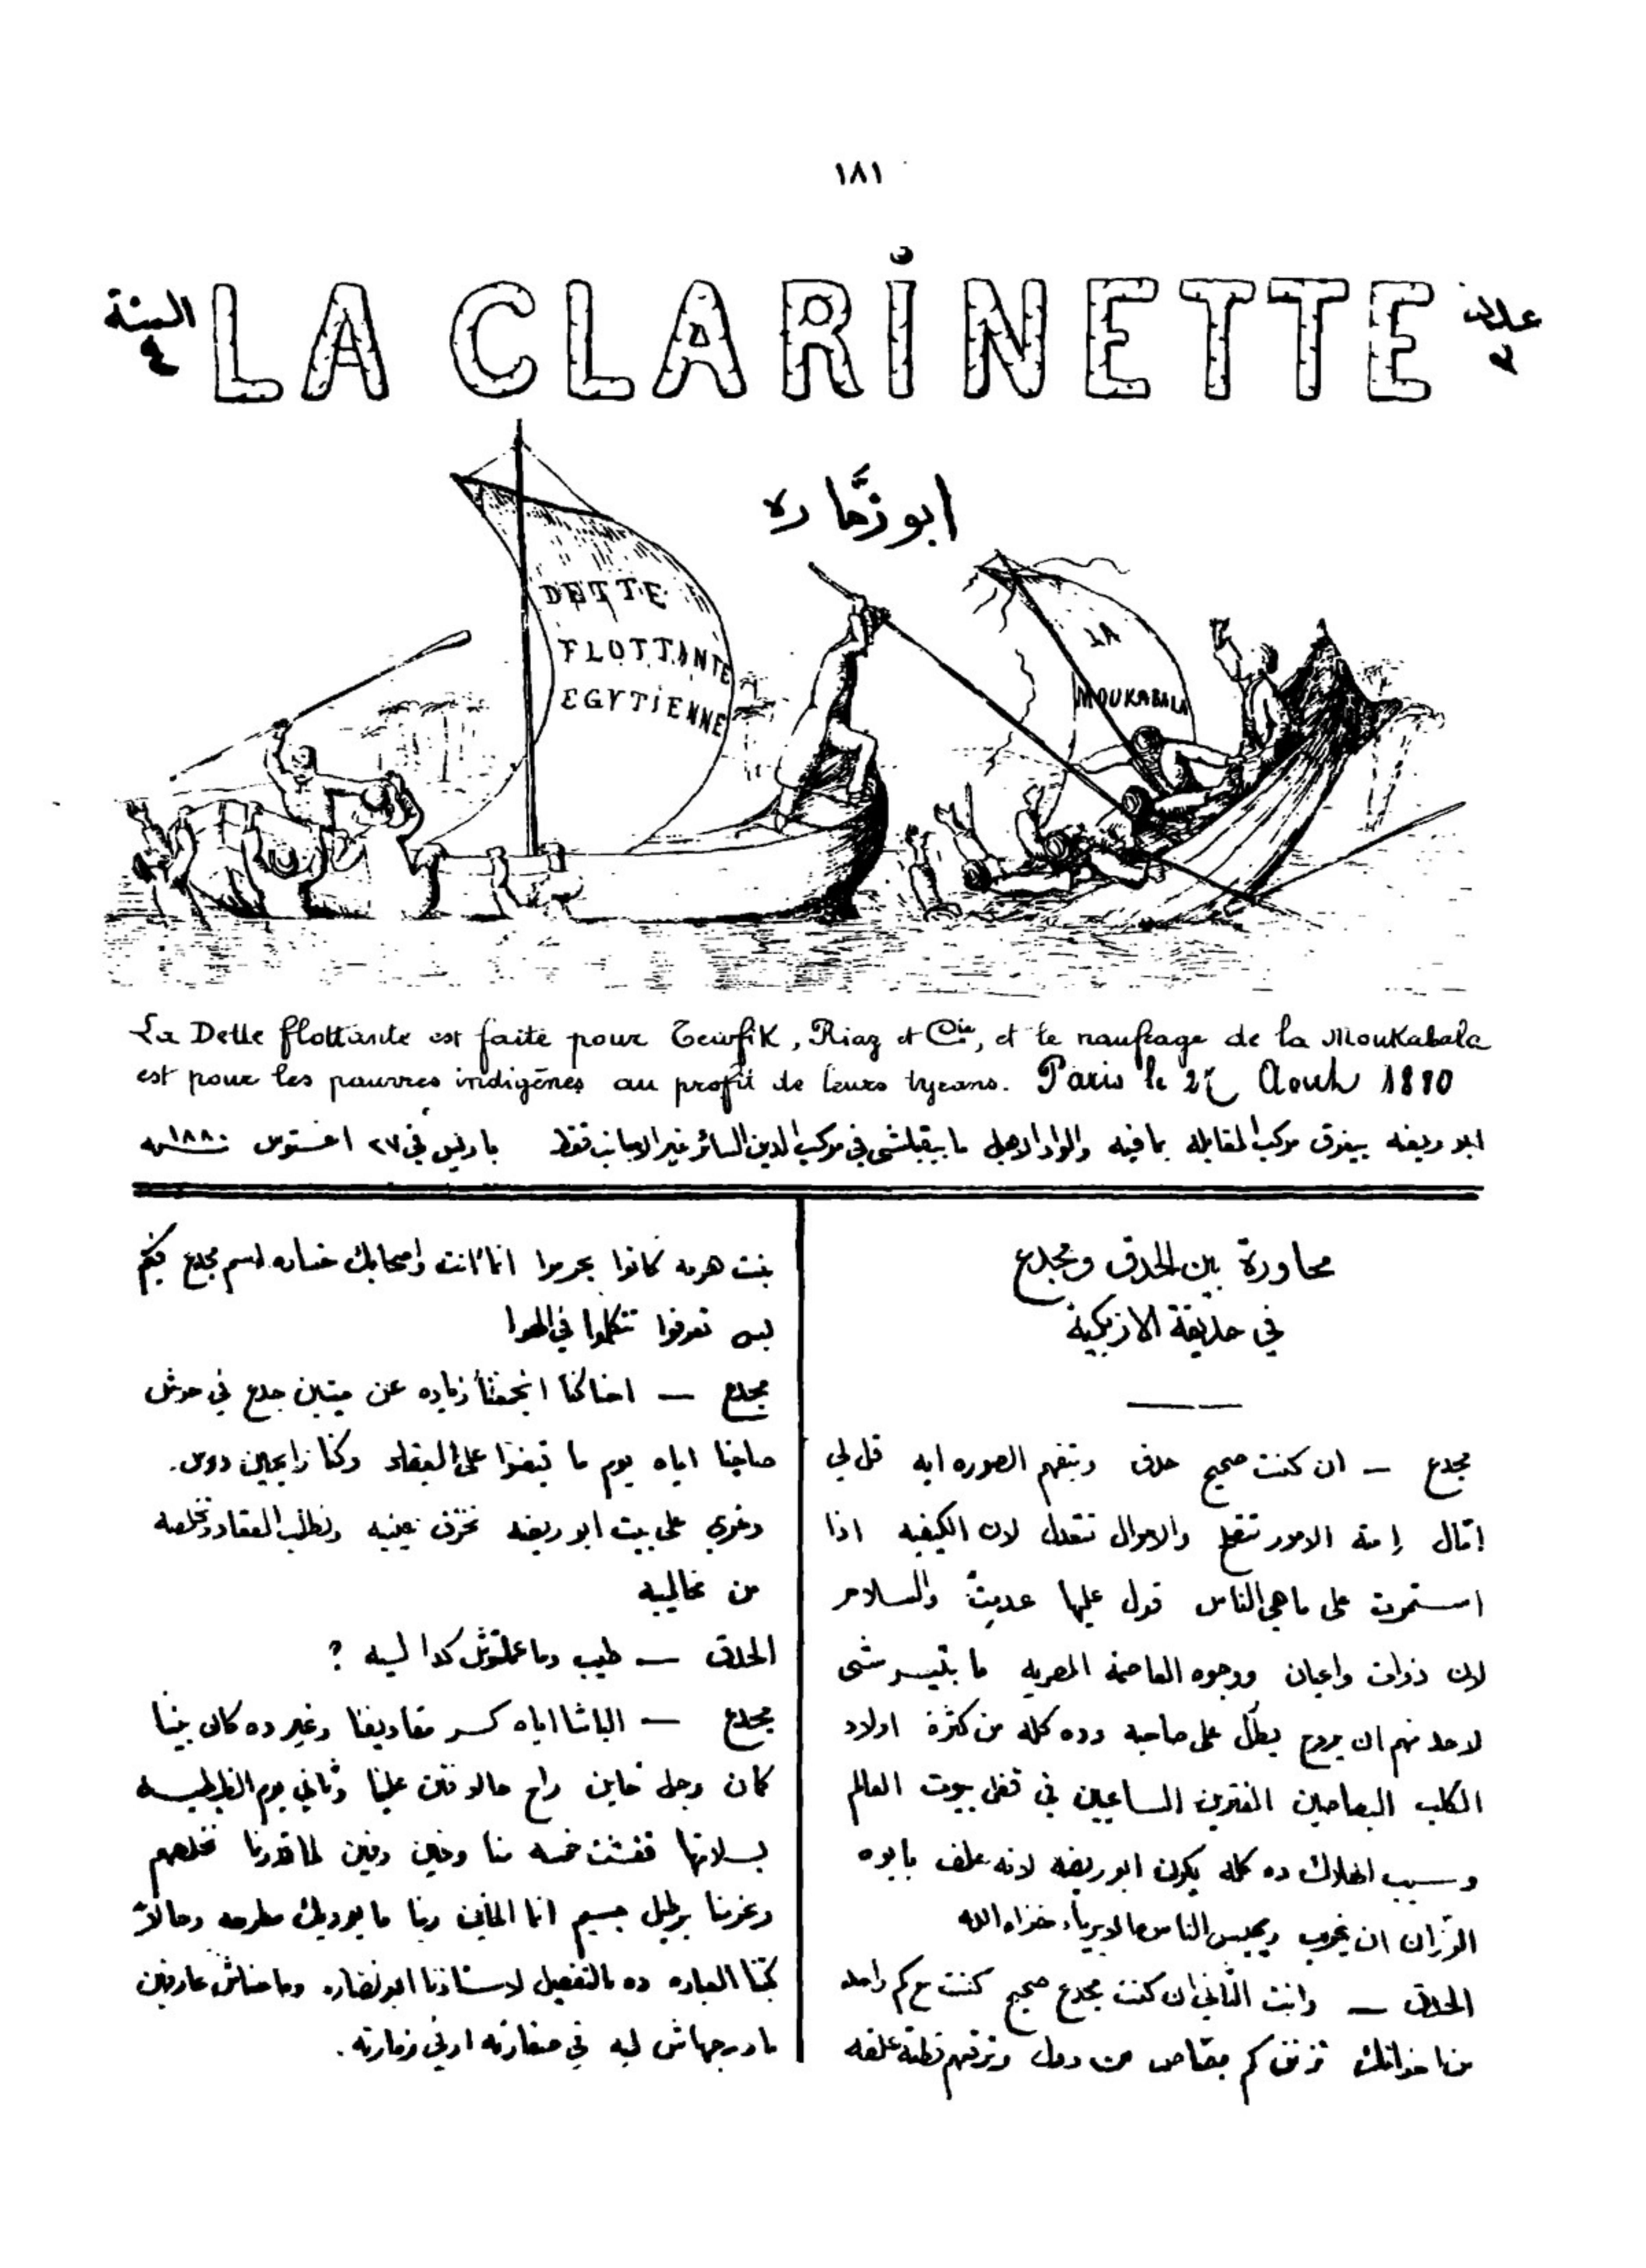 ١٨١
LA CLARINETTE
عدد
٢
السنة
٤
ابو زمّاره
DETTE
FLOTTANTE
EGYTIENNE
LA
MOUKABALA
La Dette flottante est faite pour Tewfik, Riaz et Cie, et le naufrage de la Moukabala
est pour les pauvres indigènes au profit de leurs tyrans. Paris le 27 Aout 1880
ابو ريضه بيغرق مركب المقابله بما فيه والواد الاهبل ما بيقبلشى في مركب الدين السائر غير الاجانب فقط باريس في ٢٧ اغستوس ١٨٨٠ سنه
محاورة بين الحدق ومجدع
في حديقة الازبكية
مجدع — ان كنت صحيح حدق وبتفهم الصوره ايه قل لي
امّال إمته الامور تتصلح والاحوال تتعدل لان الكيفيه اذا
استمرت على ما هي الناس قول عليها عديت والسلام
لان ذوات واعيان ووجوه العاصمة المصريه ما بتيسرشى
لاحد منهم ان يروح يطلّ على صاحبه وده كله من كثرة اولاد
الكلب البصاصين المفترين الساعيين في قفل بيوت العالم
وسبب الهلاك ده كله يكون ابو ريضه لانه حلف بابوه
الوزان ان يخرب ويحبس الناس الابرياء خزاه الله
الحدق — وانت التاني ان كنت مجدع صحيح كنت مع كم واحد
من اخوانك تزنق كم بصاص من دول وترقهم حتة علقه
بنت هرمه كانوا يحرموا انما انت واصحابك خساره اسم مجدع فيكم
بس تعرفوا تتكلموا في الهوا
مجدع — احنا كنا اتجمعنا زياده عن ميتين جدع في حوش
صاحبنا اياه يوم ما قبضوا على العقاد وكنا رايحين دوس.
دغري على بيت ابو ريضه نخزق عينيه ونطلب العقاد ونخلصه
من مخاليبه
الحدق — طيب وما عملتوش كدا ليه ؟
مجدع — الباشا اياه كسر مقاديفنا وغير ده كان بيننا
كان رجل خاين راح حالا فتن علينا وتاني يوم الظبطيه
بسلامتها قفشت خمسه منا وفين وفين لما قدرنا نخلصهم
وغرمنا برطيل جسيم انما الخاين ربنا ما يوريك مطرحه وحالاً
كتبنا العباره ده بالتفصيل لاستاذنا ابو نضاره وما احناش عارفين
ما درجهاش ليه في صفارته او في زمارته.